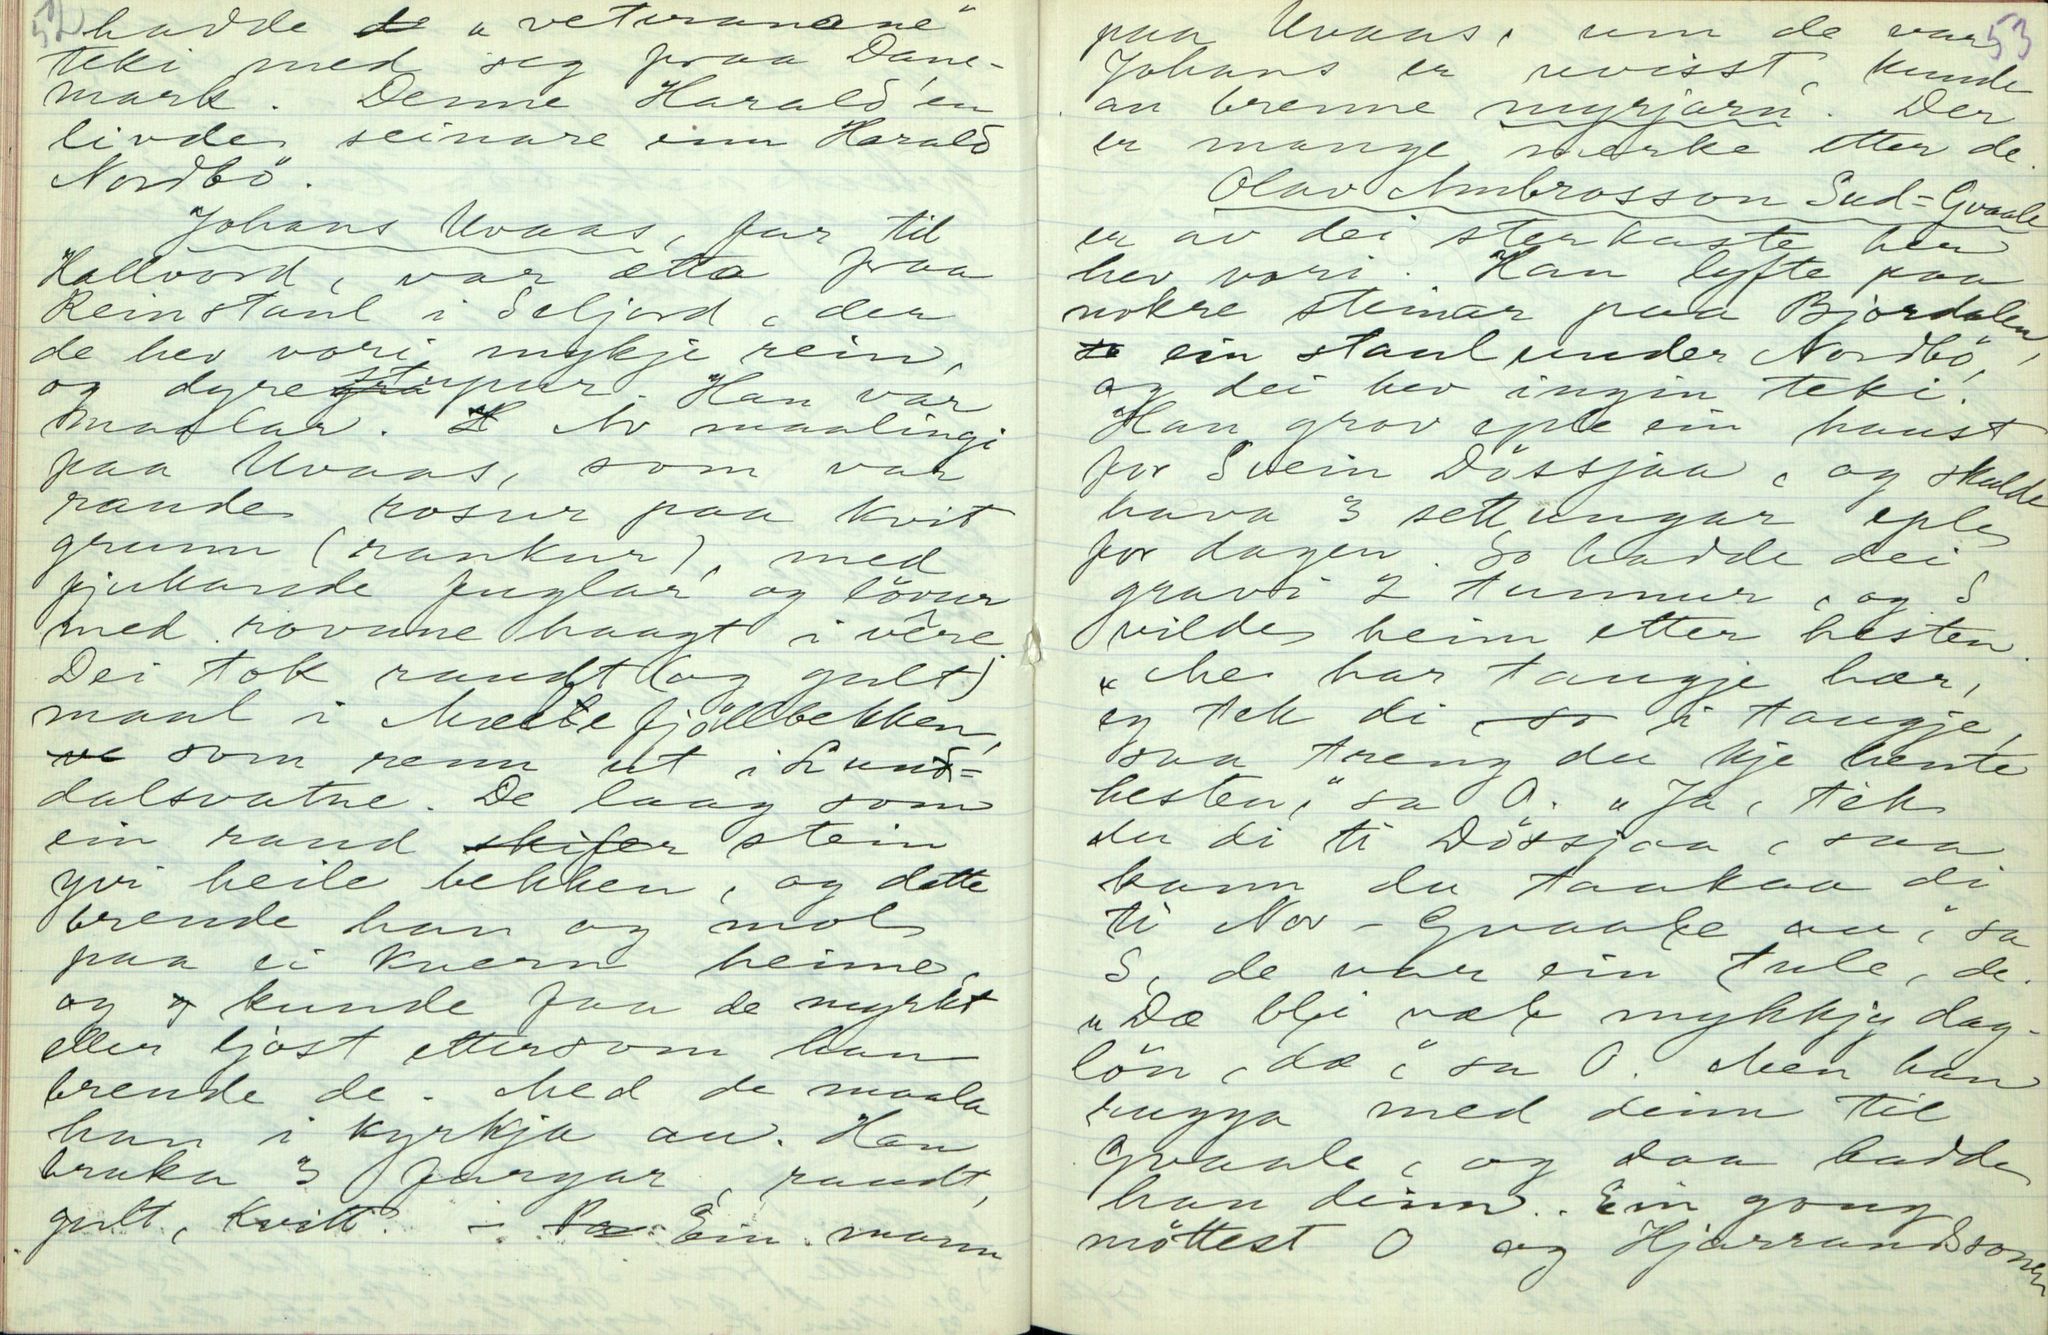 52
hadde de „veteranane"
teki med seg fraa Dane-
mark. Denne Harald'en
livde seinare enn Harald
Nordbö.
Johans Uvaas, far til
Hallvord, var ætta fraa
Reinstaul i Seljord, der
de hev vori mykje rein,
og dyrestupur. Han var
maalar. H Av maalingi
paa Uvaas, som var
raude rosur paa kvit
grunn (rankur), med
fjukande fuglar og lövur
med rovune haagt i vêre.
Dei tok raudt (og gult)
maal i Mælefjöllbekken,
va som renn ut i Lund-
dalsvatne. De laag som
ein rand skifer stein
yvi heile bekken, og dette
brende han og mol
paa ei kvern heime,
og o kunde faa de myrkt
eller ljost ettersom han
brende de. Med de maala
han i kyrkja au. Han
bruka 3 fargar, raudt,
gult, kvitt. – Paa Ein mann
53
paa Uvaas, um de var
Johans er uvisst, kunde
au brenne myrjarn. Der
er mange merke etter de.
Olav Ambrosson Sud-Gvaale
er av dei sterkaste her
hev vori. Han lyfte paa
nokre steinar paa Bjordalen,
so ein staul under Nordbö,
og dei hev ingin teki.
Han grov eple ein haust
for Svein Dössjaa, og skulde
hava 3 settungar eple
for dagen. So hadde dei
gravi 2 tunnur, og S
vilde heim etter hesten.
„Me har taugje hær,
eg tek di so i taugje,
saa treng du kje hente
hesten," sa O. „Ja, tek
du di ti Dössjaa, saa
kann du taakaa di
ti Nor-Gvaale au," sa
S, de var ein tule, de.
„Dæ bli væl mykkjy dag-
lön, dæ," sa O. Men han
rugga med deim til
Gvaale, og daa hadde
han deim. Ein gong
möttest O og Hjarrandsonen